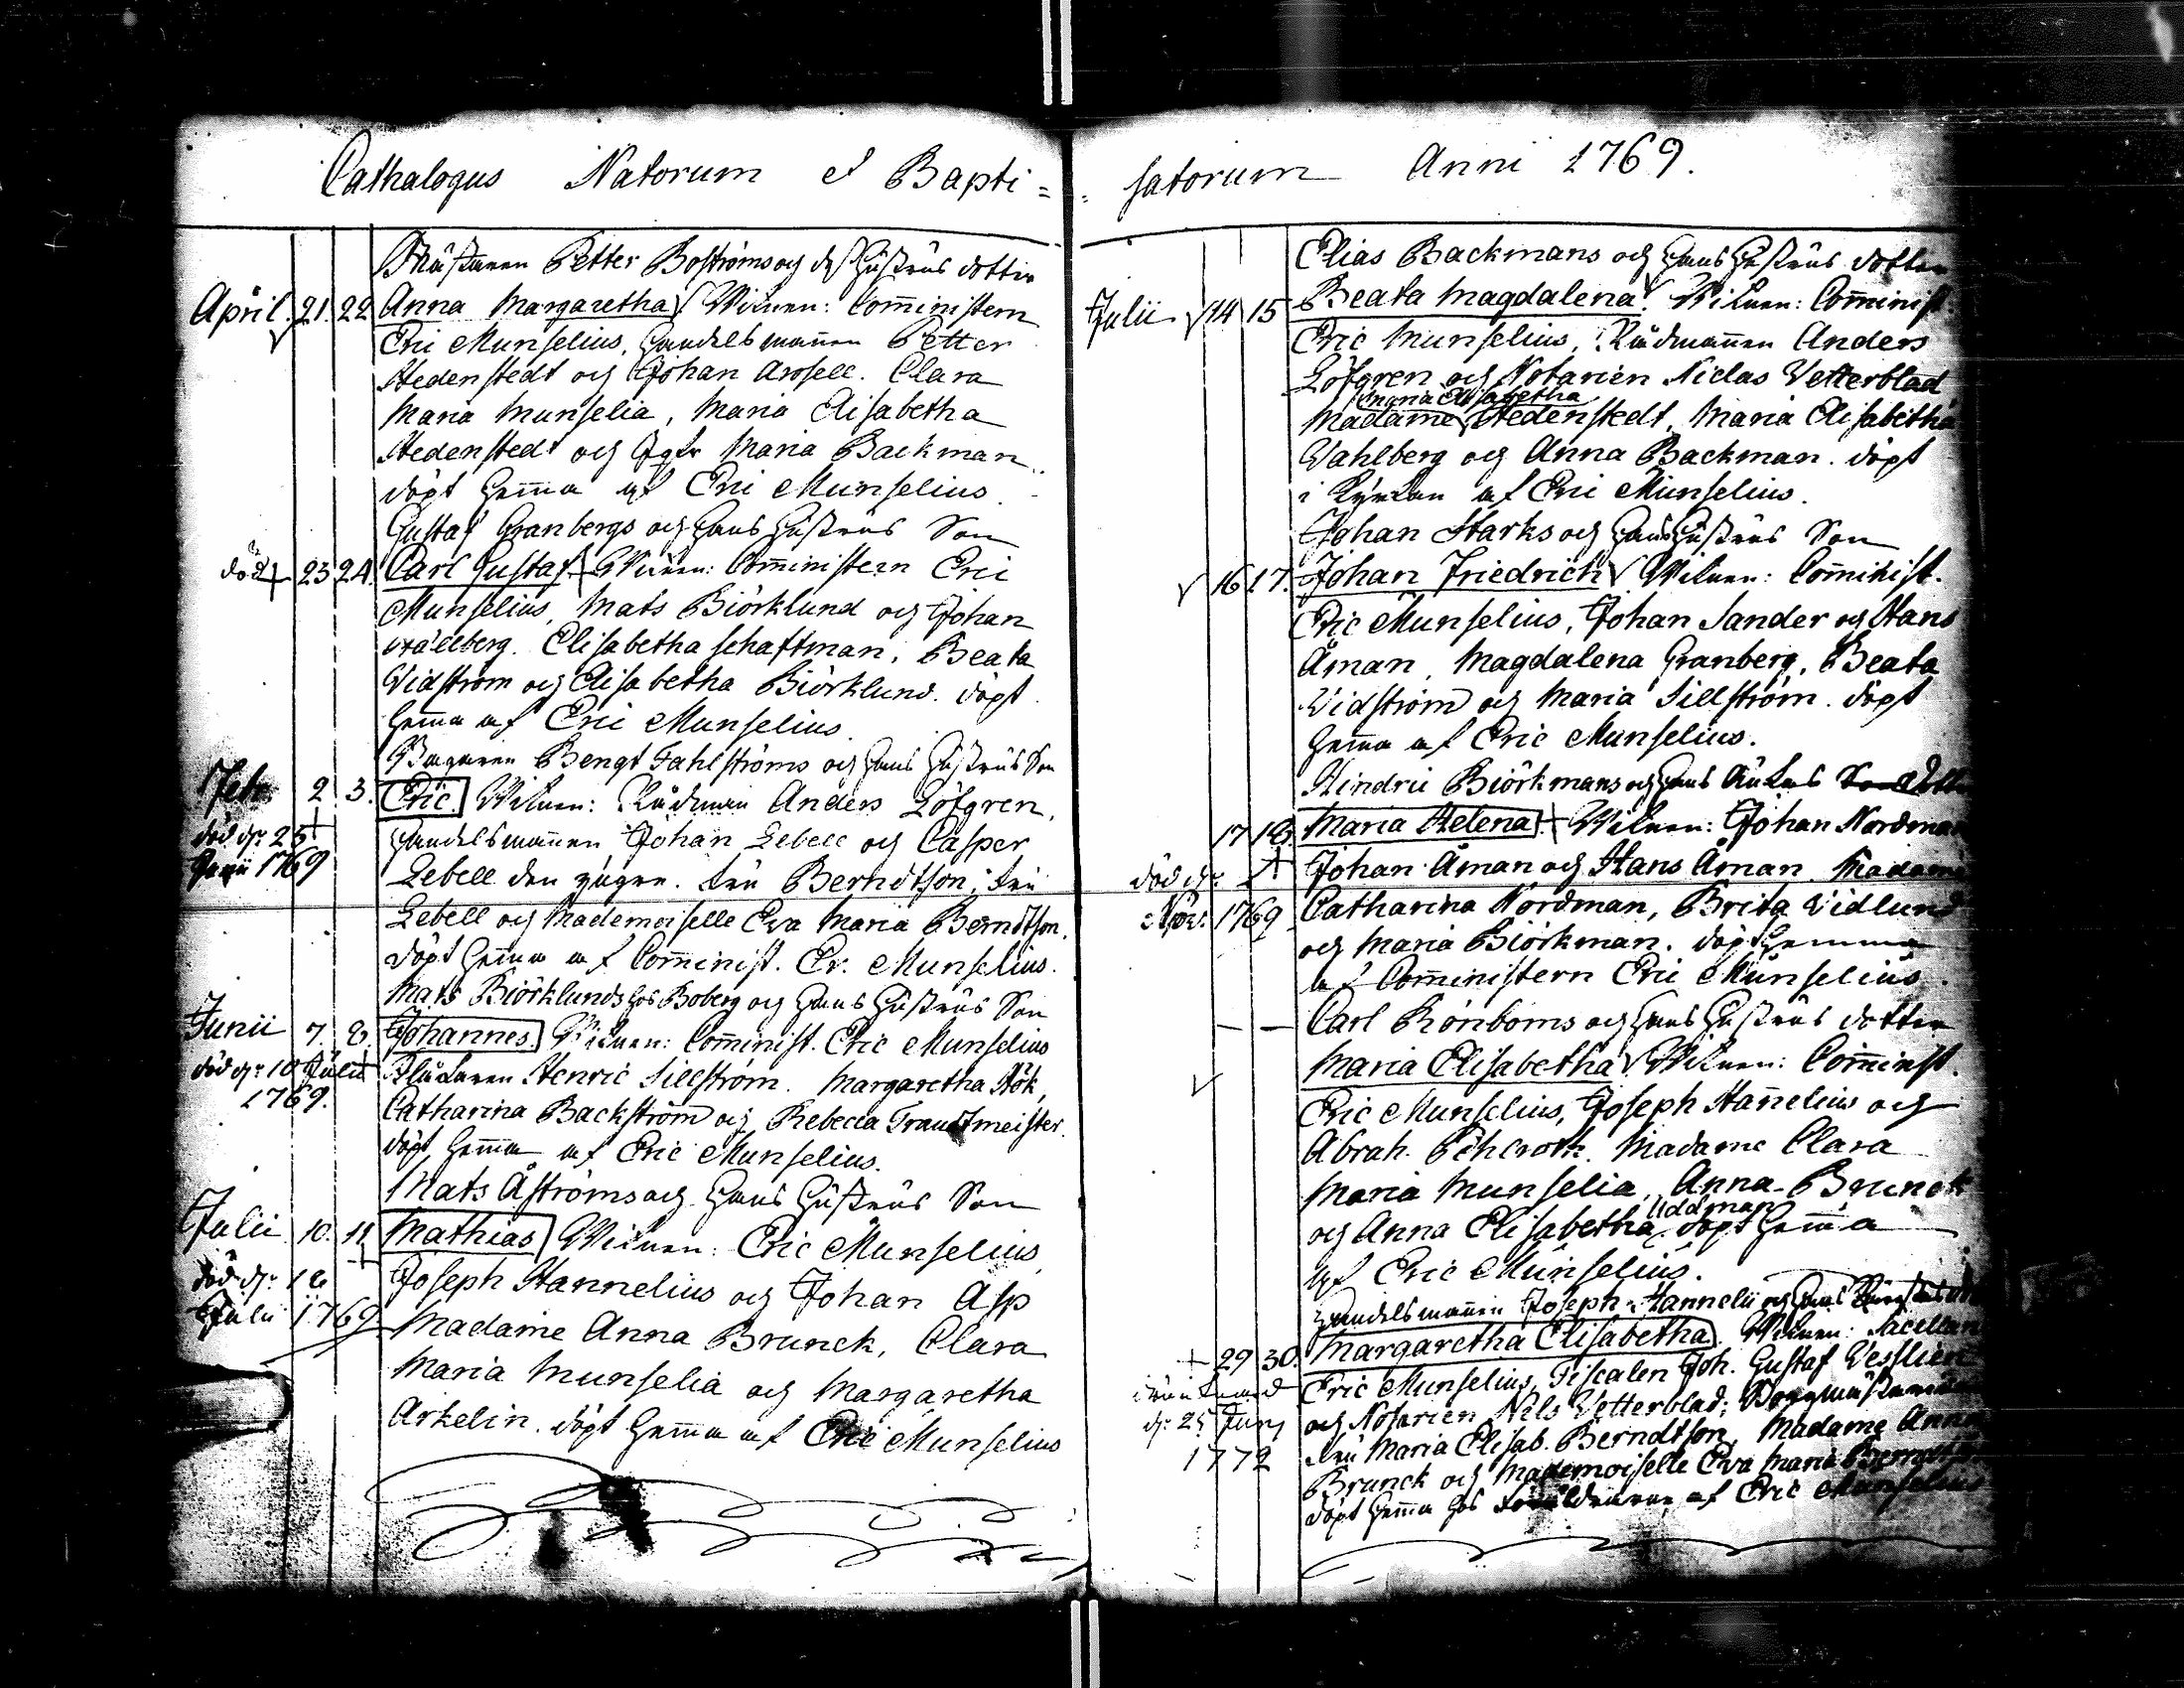 Cathalogus Natorum et Bapti=
Mästaren Petter Boströms och des hustrus dotter
April. 21. 22 Anna Margaretha Witnen: Com̄inistern
Eric Munselius, handelsman̄en Petter
Hedenstedt och Johan Arosell. Clara
Maria Munselia, Maria Elisabetha
Hedenstedt och Jgfr Maria Backman.
döpt hem̄a af Eric Munselius.
Gustaf Granbergs och hans hustrus Son
död 23 24. Carl Gustaf Witnen: Com̄inistern Eric
Munselius, Mats Biörklund och Johan
Elisabetha Schaftman, Beata
Vidström och Elisabetha Biörklund. döpt
hem̄a af Eric Munselius.
Bagaren Bengt Fahlströms och hans hustrus Son
2 3. Eric. Witnen: Rådman Anders Löfgren,
död d. 25
1769
handelsman̄en Johan Lebell och Casper
Lebell den yngre. fru Berndtson, fru
Lebell och Mademoiselle Eva Maria Berndtson.
döpt hem̄a af Com̄inist. Er. Munselius.
Mats Biörklunds hos Boberg och hans hustrus Son
Junii 7. 8. Johannes. Witnen: Com̄inist. Eric Munselius
död d. 10 Julii
1769.
Henric Sillström. Margaretha Hök,
Catharina Backström och Rebecca Trautmeister.
döpt hem̄a af Eric Munselius.
Mats Åströms och hans hustrus Son
Julii 10. 11. Mathias Witnen: Eric Munselius,
död d.
Julii 1769
Joseph Hannelius och Johan Asp
Madame Anna Brunck, Clara
Maria Munselia och Margaretha
Arkelin. döpt hem̄a af Eric Munselius
satorum Anni 1769.
Elias Backmans och hans hustrus dotter
Julii 14 15 Beata Magdalena. Witnen: Com̄inist.
Eric Munselius, Rådman̄en Anders
Löfgren och Notarien Niclas Vetterblad
Maria Elisabetha
Madame Hedenstedt, Maria Elisabetha
Vahlberg och Anna Backman. döpt
i Kyrkan af Eric Munselius.
Johan Starks och hans hustrus Son
16 17. Johan Friedrich Witnen: Com̄inist.
Eric Munselius, Johan Sander och Hans
Åman, Magdalena Granberg, Beata
Vidström och Maria Sillström. döpt
hem̄a af Eric Munselius.
Hindric Biörkmans och hans
17 18. Maria Helena. Witnen: Johan Nordman
död d.
Nov. 1769
Johan Åman och Hans Åman. Madame
Catharina Nordman, Brita Vidlund
och Maria Biörkman. döpt hemma
af Com̄inistern Eric Munselius.
— — Carl Rönboms och hans hustrus dotter
Maria Elisabetha Witnen: Com̄inist.
Eric Munselius, Joseph Han̄elius och
Abrah. Madame Clara
Maria Munselia, Anna Brunck
Uddman
och Anna Elisabetha. döpt hem̄a
af Eric Munselius.
handelsman̄en Joseph Hannelii och hans
29 30. Margaretha Elisabetha. Witnen:
d. 25 Junj
1772
Eric Munselius, Fiscalen Joh. Gustaf
och Notarien Nils Vetterblad; Borgmästarin̄an
fru Maria Elisab. Berndtson, Madame Anna
Brunck och Mademoiselle Eva Maria Berndtson
döpt hem̄a hos föräldrarne af Eric Munselius